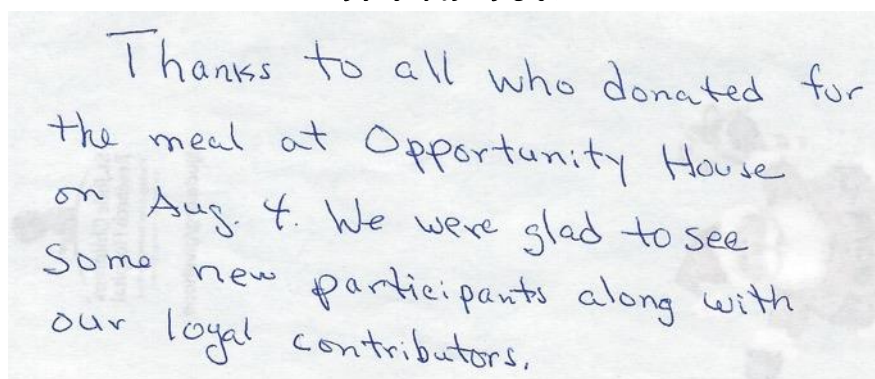 Thanks to all who donated for
the meal at Opportunity House
on Aug. 4. We were glad to see
Some new participants along with
our loyal contributors.